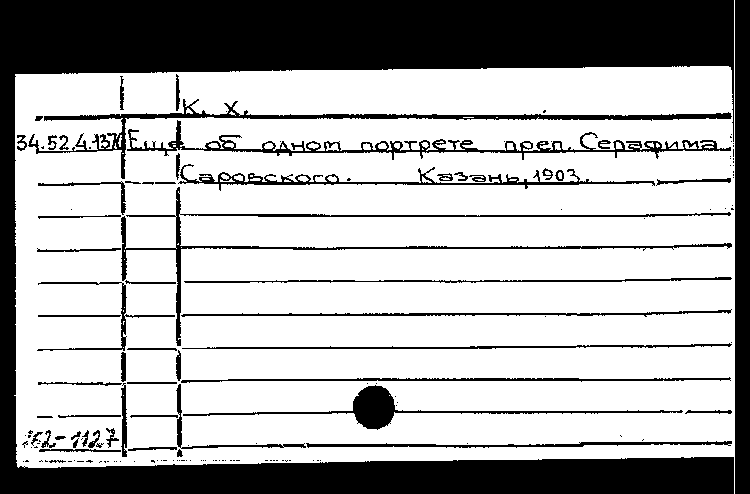 К. Х.
34.52.4.1376 Еще об одном портрете преп. Серафима
Саровского. Казань, 1903.
162-1127